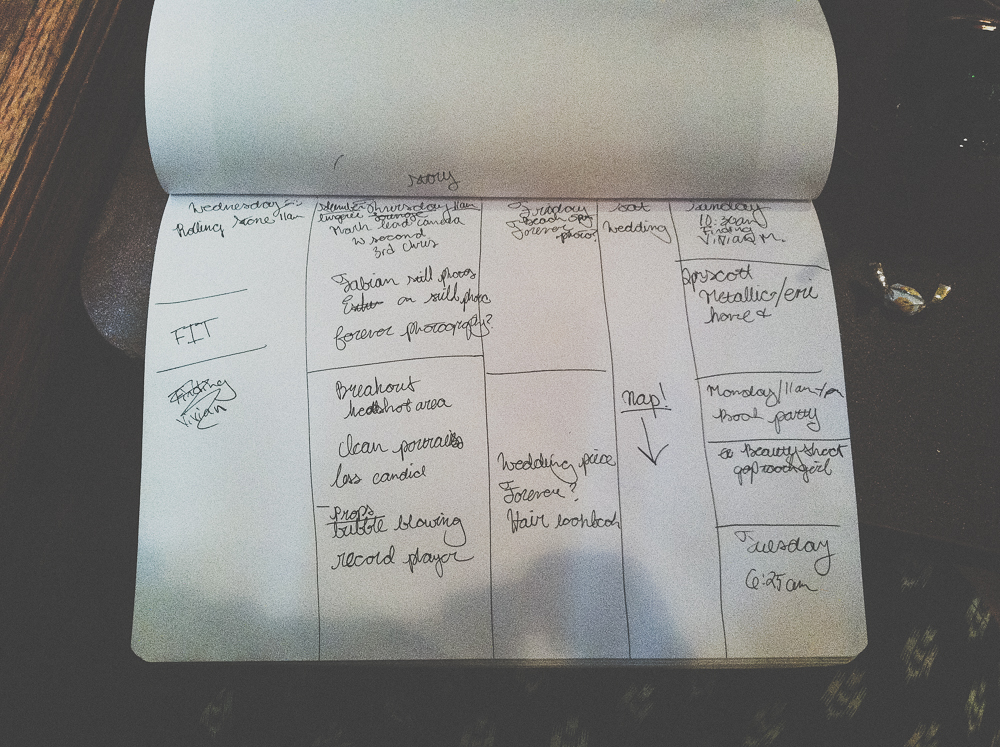 story
Wednesday
Rolling Stone 11am
FIT
Finding
Vivian
Thursday 11am
lead
w second
3rd Chris
Fabian still photos
on still photo
forever photography?
Breakout
headshot area
clean portraits
less candid
Props
bubble blowing
record player
Friday
Beach
Forever
photo?
Wedding piece
Forever?
Hair lookbook
Sat
Wedding
Nap!
Sunday
10:30am
Finding
Vivian M.
Metallics/
home &
Monday/11am
Book party
Beauty Shoot
Tuesday
6:25am